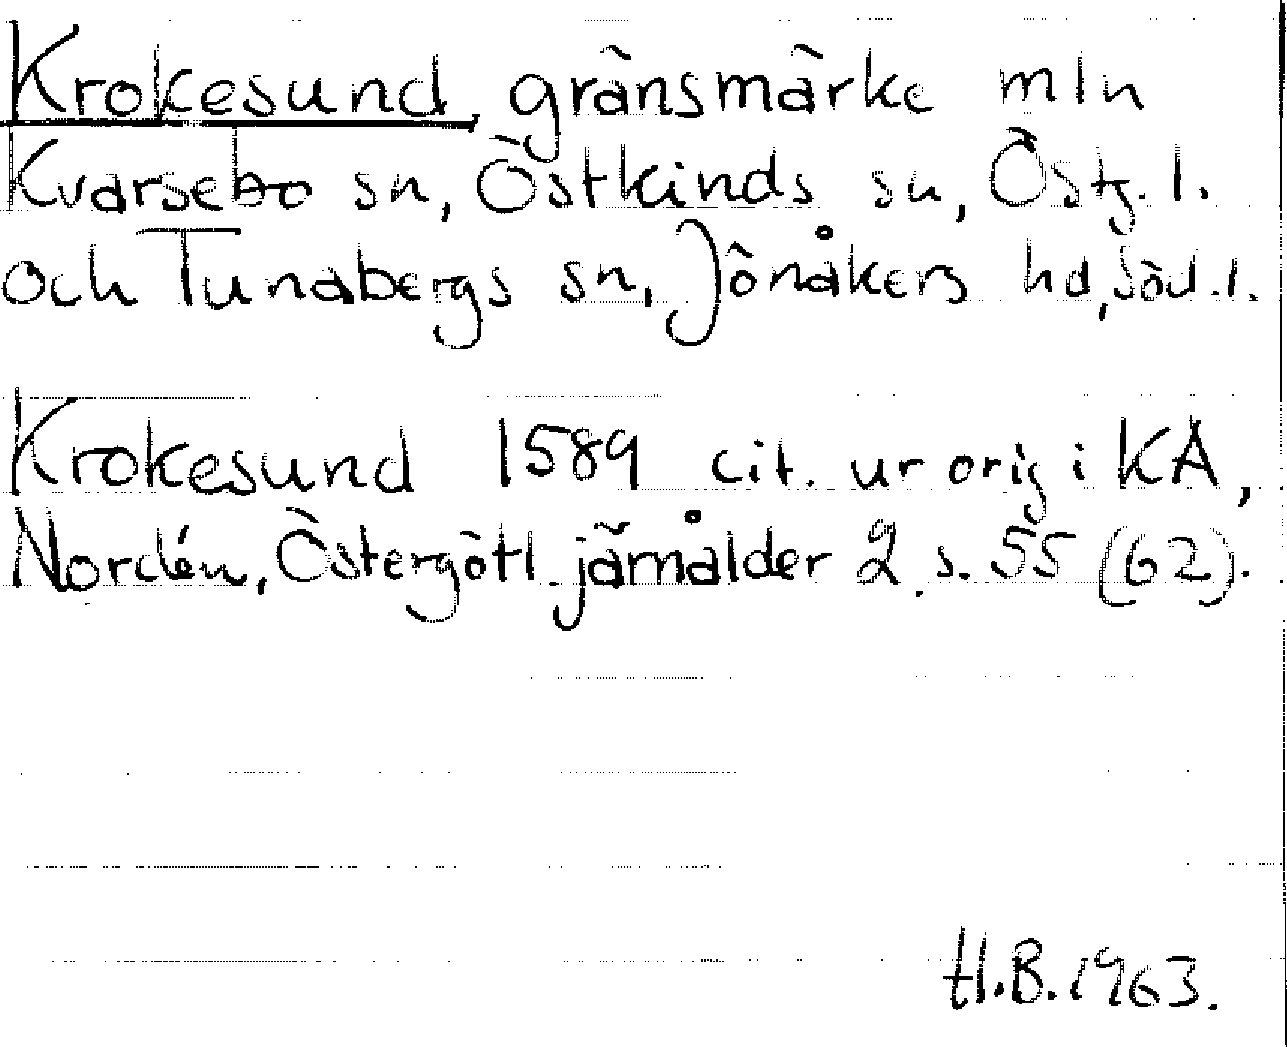 Krokesund, gränsmärke mln
Kvarsebo sn, Östkinds sn, Östg. l.
och Tunabergs sn, Jönåkers hd, Söd. l.
Krokesund 1589 cit. ur orig i KA,
Nordén, Östergötl. järnålder 2 s. 55 (62).
H.B. 1963.